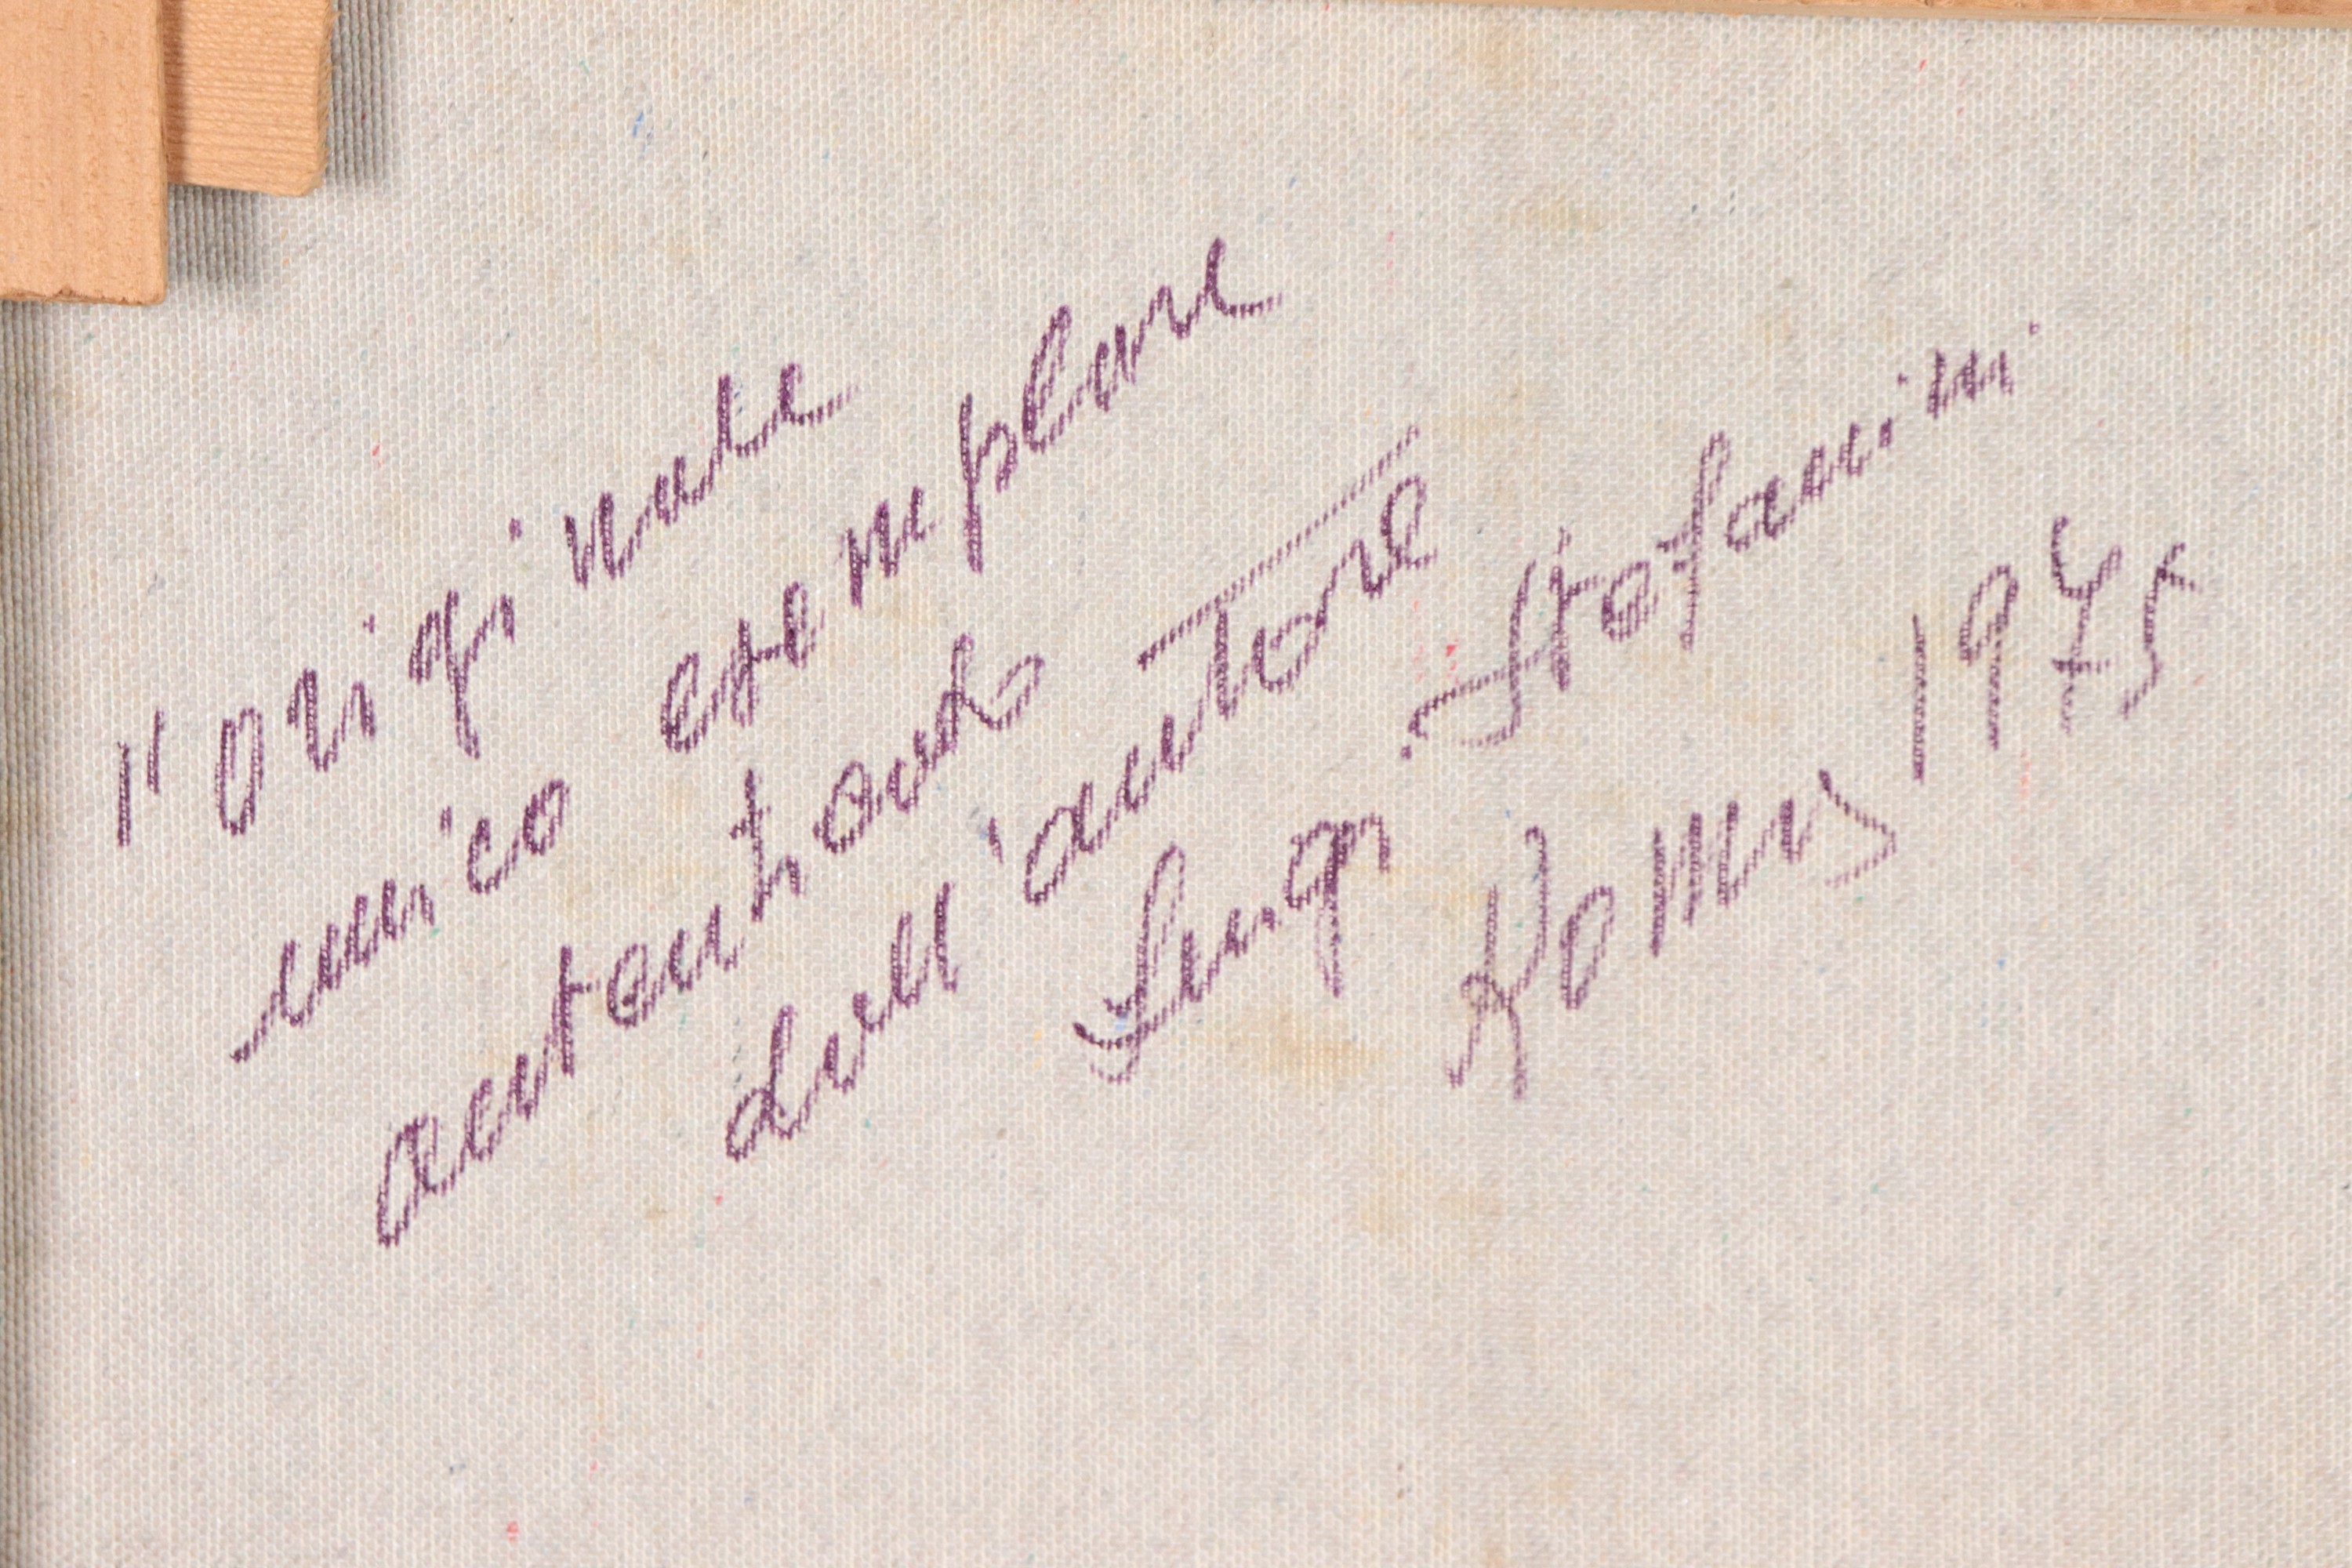 "Originale
unico esemplare
autenticato
dall'autore
Luigi Stefanini
Roma, 1975